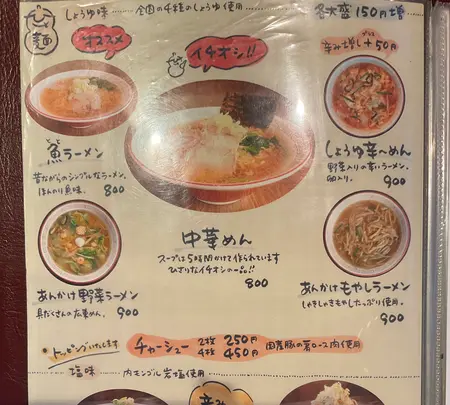 しょうゆ味 全国の4種のしょうゆ使用 各大盛150円増
麺
オススメ
イチオシ!!
辛み増し+50円
魚ラーメン
昔ながらのシンプルなラーメン。
ほんのり魚味。 800
しょうゆ辛〜めん
野菜入りの辛いラーメン。
卵入り。 900
中華めん
スープは5時間かけて作られています
ひざりなイチオシの一品!!
800
あんかけ野菜ラーメン
具だくさんの広東めん。 900
あんかけもやしラーメン
しゃきしゃきもやしたっぷり使用。
900
トッピングいたします
チャーシュー 2枚 250円
4枚 450円
国産豚の肩ロース肉使用
塩味 内モンゴル岩塩使用
辛み